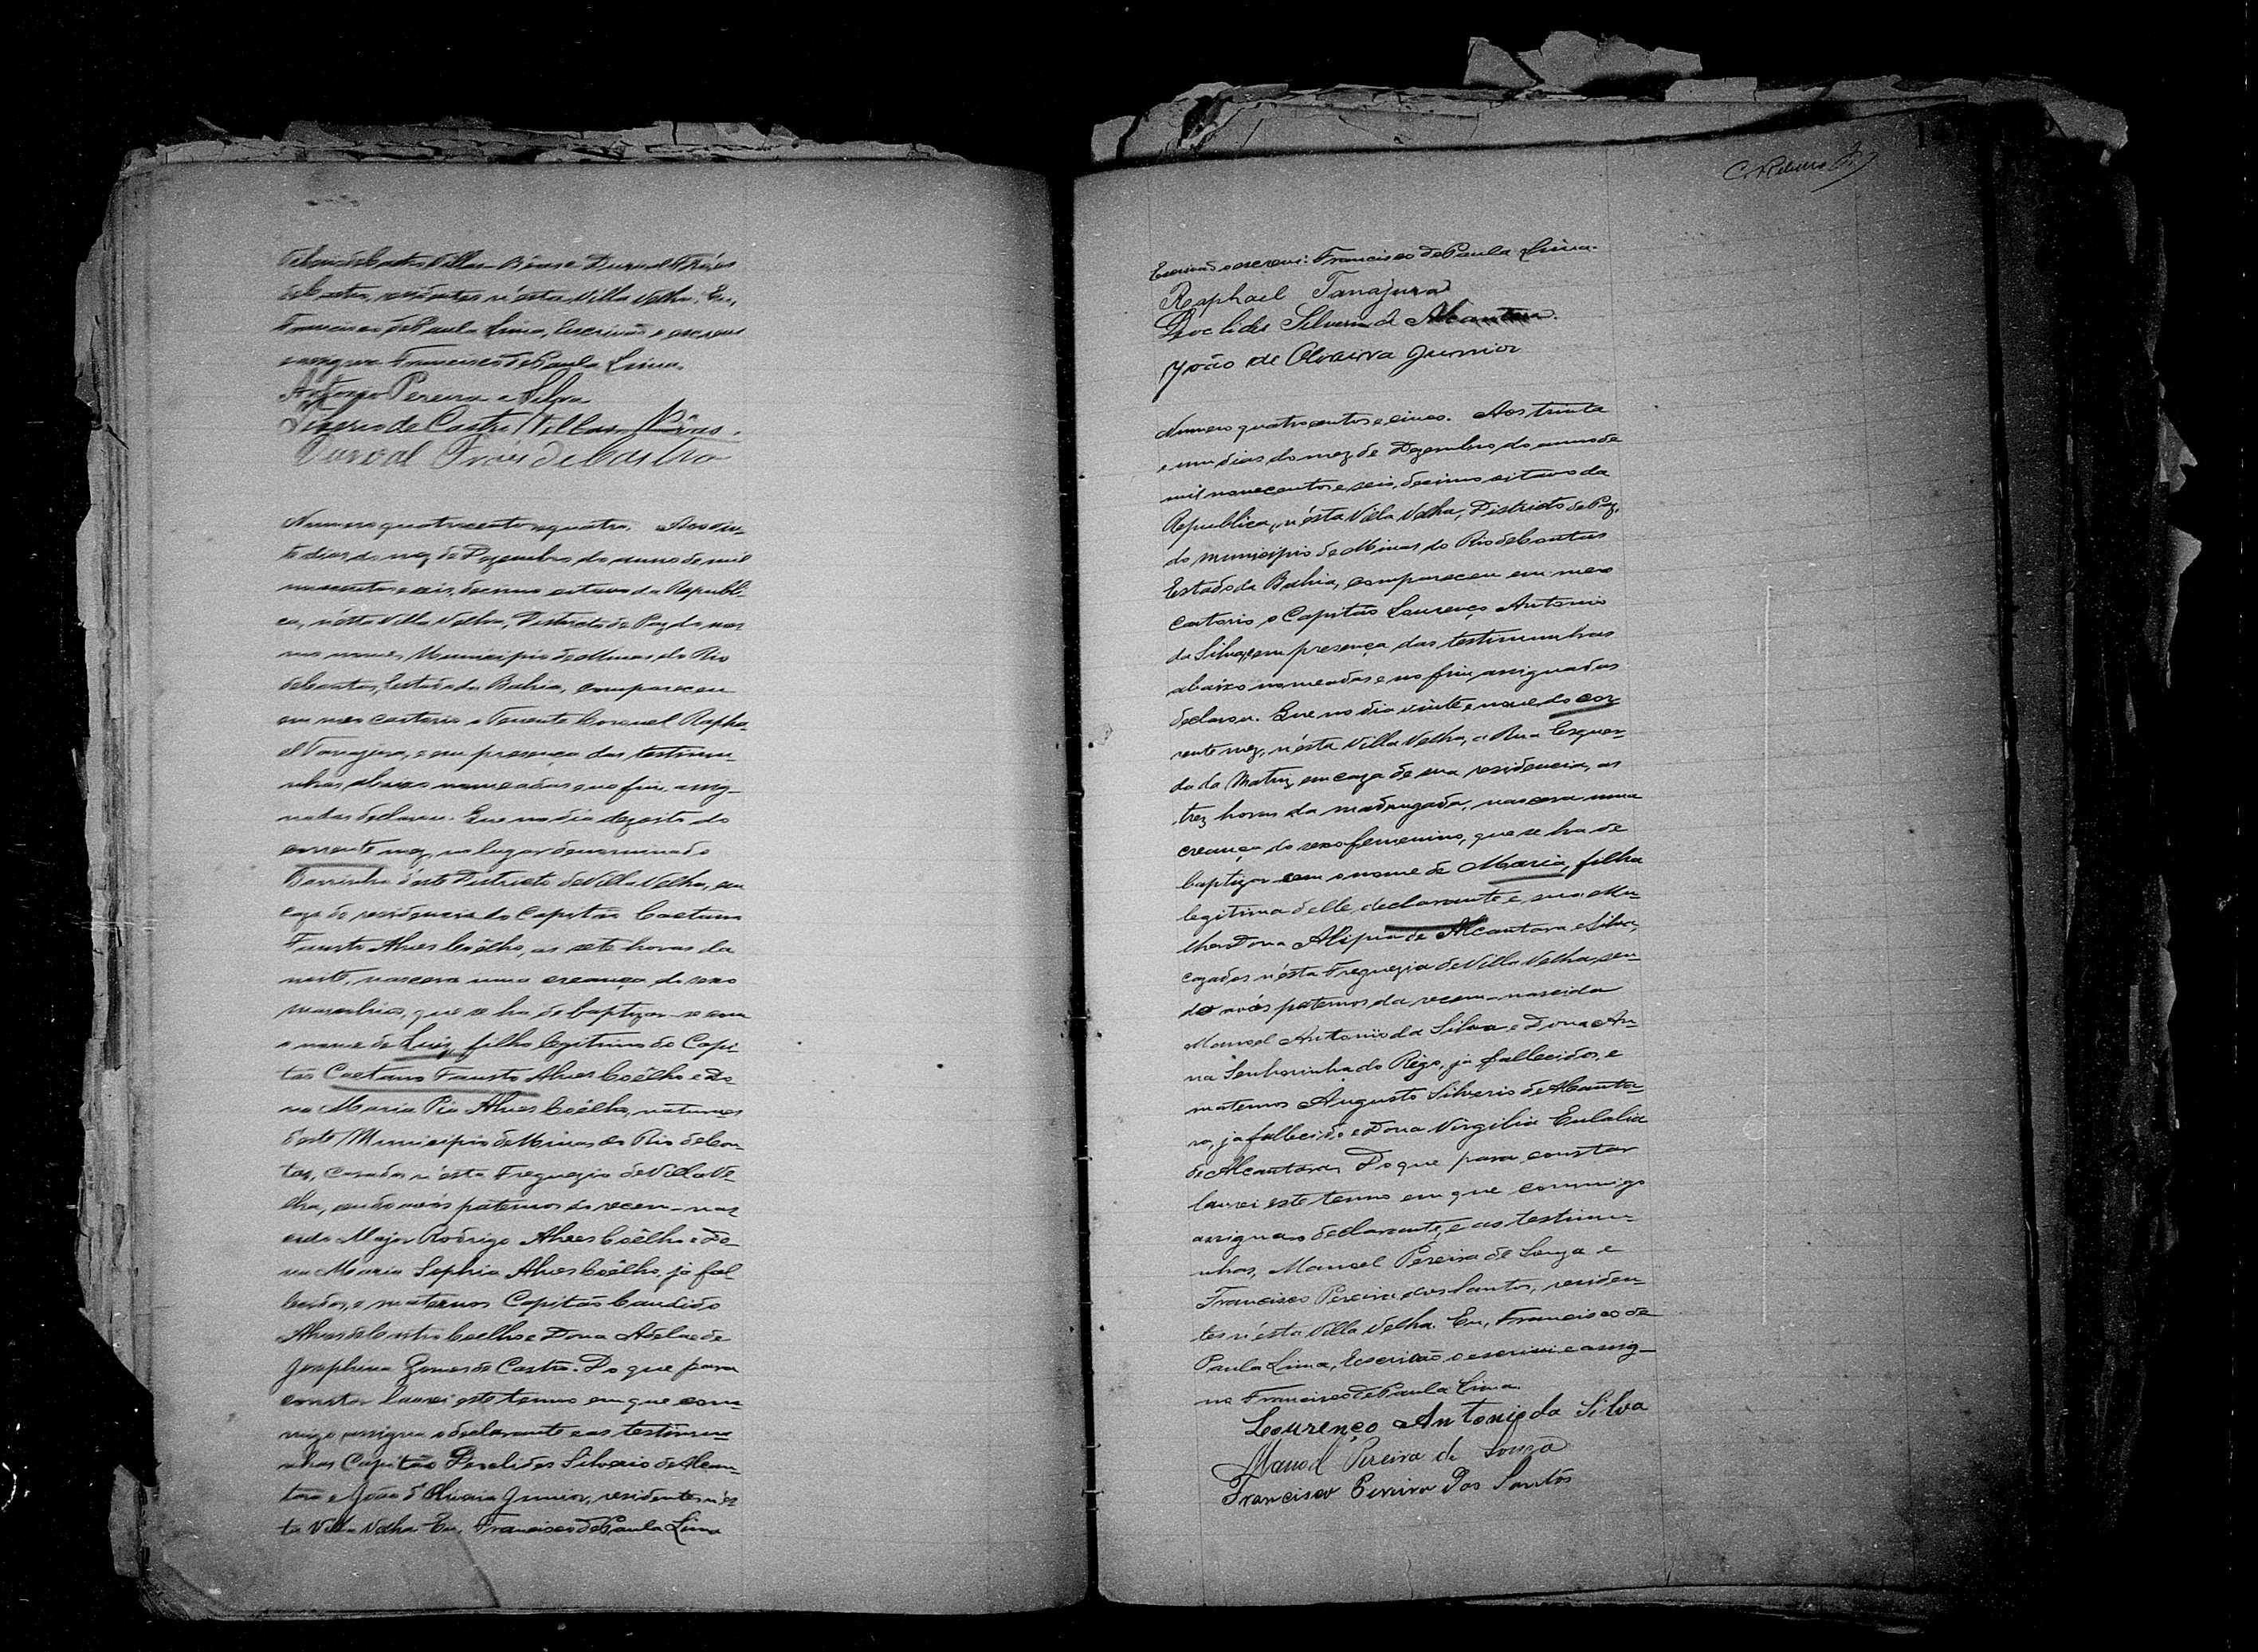 de Castro Villas-Bôas e Durval Fróes
de Castro, residentes n'esta Villa Velha. Eu,
Francisco de Paula Lima, Escrivão o escrevi
e assigno Francisco de Paula Lima.
Antonio Pereira e Silva
de Castro Villas Bôas.
Durval Fróes de Castro
Numero quatrocentos e quatro. Aos vin-
te dias do mez de Dezembro do anno de mil
novecentos e seis, decimo oitavo da Republi-
ca, n'esta Villa Velha, Districto de Paz do mes-
mo nome, Municipio de Minas do Rio
de Contas, Estado da Bahia, compareceu
em meo cartorio o Tenente Coronel Rapha-
el Tanajura, e em presença das testimu-
nhas abaixo nomeadas e no fim assig-
nadas declarou. Que no dia dezoito do
corrente mez, no lugar denominado
Barrinha d'este Districto de Villa Velha, em
caza de residencia do Capitão Caetano
Fausto Alves Coêlho, as sete horas da
noite, nascera uma creança do sexo
masculino, que se ha de baptizar-se com
o nome de Luiz, filho legitimo do Capi-
tão Caetano Fausto Alves Coêlho e Do-
na Maria Pia Alves Coêlho, naturaes
d'este Municipio de Minas do Rio de Con-
tas, casados n'esta Freguezia de Villa Ve-
lha, sendo avós paternos do recem-nas-
cido Major Rodrigo Alves Coêlho e Do-
na Maria Sophia Alves Coêlho, já fal-
lecidos, e maternos Capitão Candido
Alves de Castro Coelho e Dona Adelaede
Josephina Gomes de Castro. Do que para
constar lavrei este termo em que com-
migo assigna o declarante e as testimu-
nhas Capitão Deoclides Silverio de Alcan-
tara e João d'Oliveira Junior, residentes n'es-
ta Villa Velha. Eu, Francisco de Paula Lima
C. Ribeiro
Escrivão o escrevi: Francisco de Paula Lima.
Raphael Tanajura
Deoclides Silverio de Alcantara.
João de Oliveira Junior
Numero quatrocentos e cinco. Aos trinta
e um dias do mez de Dezembro do anno de
mil novecentos e seis, decimo oitavo da
Republica, n'esta Villa Velha, Districto de Paz,
do municipio de Minas do Rio de Contas
Estado da Bahia, compareceu em meo
cartorio o Capitão Lourenço Antonio
da Silva, e em presença das testimunhas
abaixo nomeadas e no fim assignadas
declarou. Que no dia vinte e nove do cor-
rente mez, n'esta Villa Velha, a Rua Esquer-
da da Matriz, em caza de sua residencia, as
trez horas da madrugada, nascera uma
creança do sexo femenino, que se ha de
baptizar com o nome de Maria, filha
legitima d'elle declarante e sua Mu-
lher Dona Alipia de Alcantara e Silva,
cazados n'ésta Freguezia de Villa Velha, sen-
do avós paternos da recem-nascida
Manoel Antonio da Silva e Dona An-
na Senhorinha do Rêgo, já fallecidos, e
maternos Augusto Silverio de Alcanta-
ra, já fallecido e Dona Virgilia Eulalia
de Alcantara. Do que para constar
lavrei este termo em que commigo
assigna o declarante, e as testimu-
nhas, Manoel Pereira de Souza e
Francisco Pereira dos Santos, residen-
tes n'ésta Villa Velha. Eu, Francisco de
Paula Lima, Escrivão o escrivi e assig-
no Francisco de Paula Lima.
Lourenço Antonio da Silva
Manoel Pereira de Souza
Francisco Pereira Dos Santos